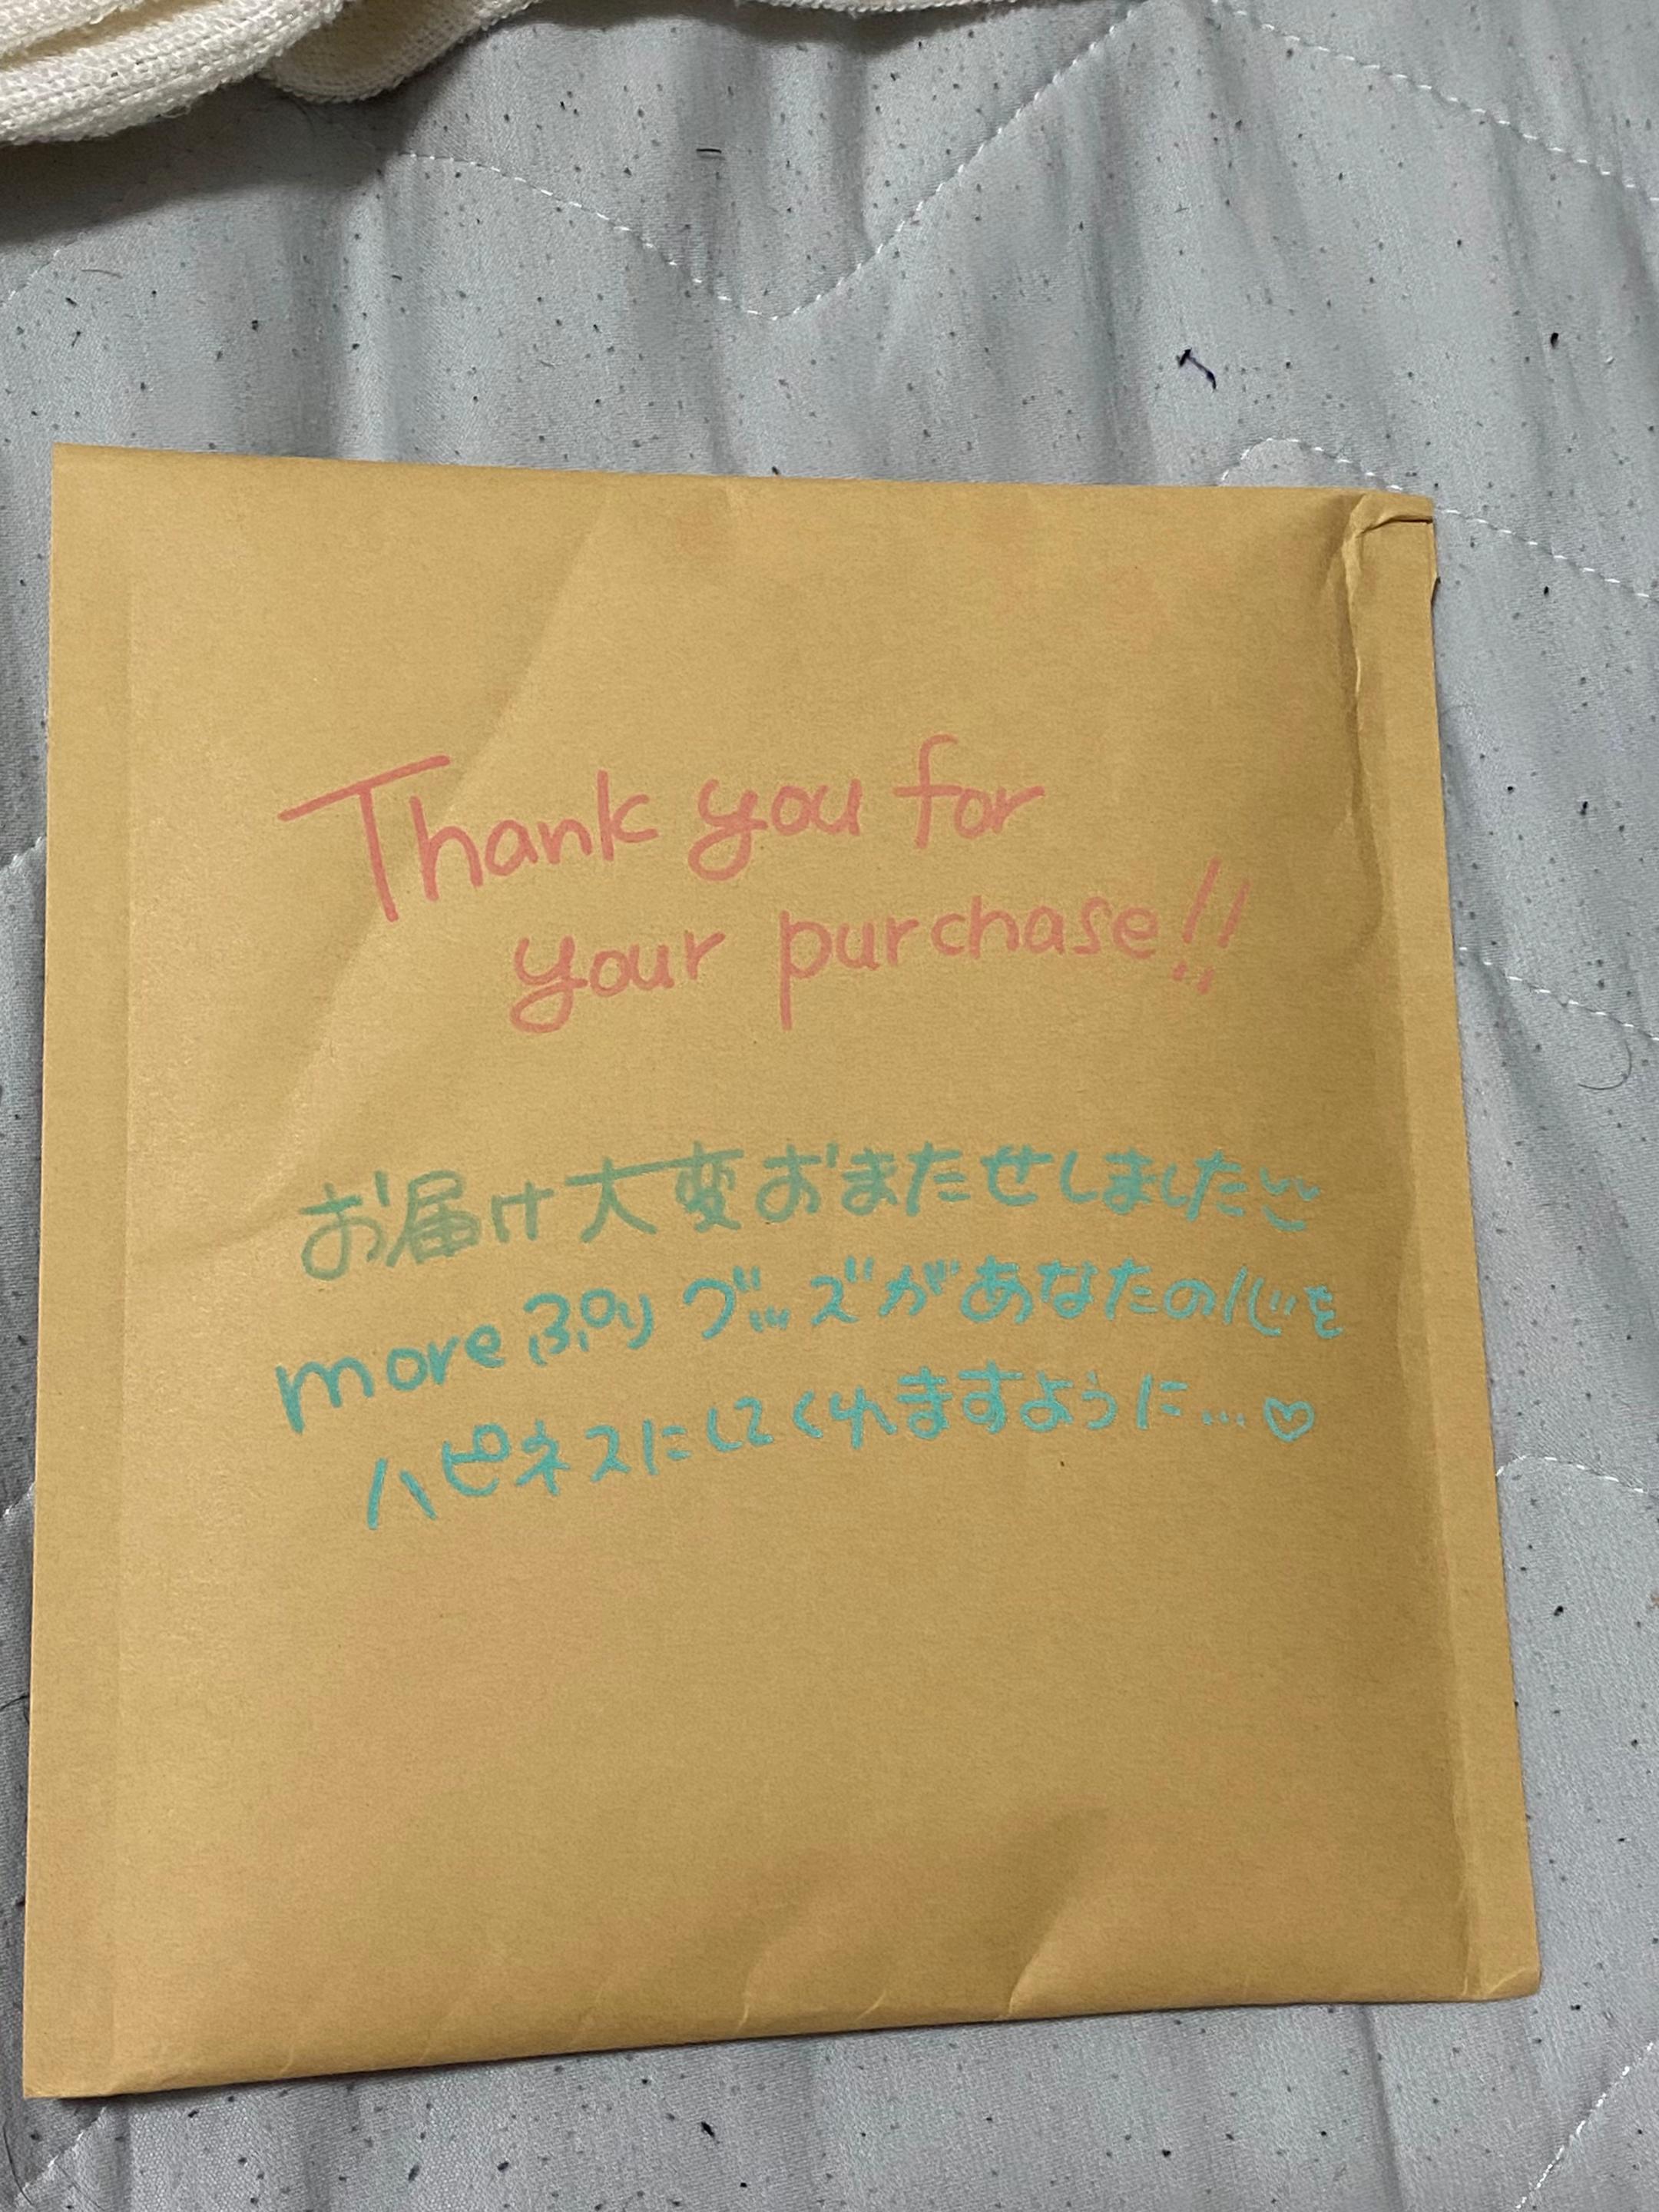 Thank you for
your purchase!!
お届け大変おまたせしました
more ぷりグッズがあなたの心を
ハピネスにしてくれますように…♡